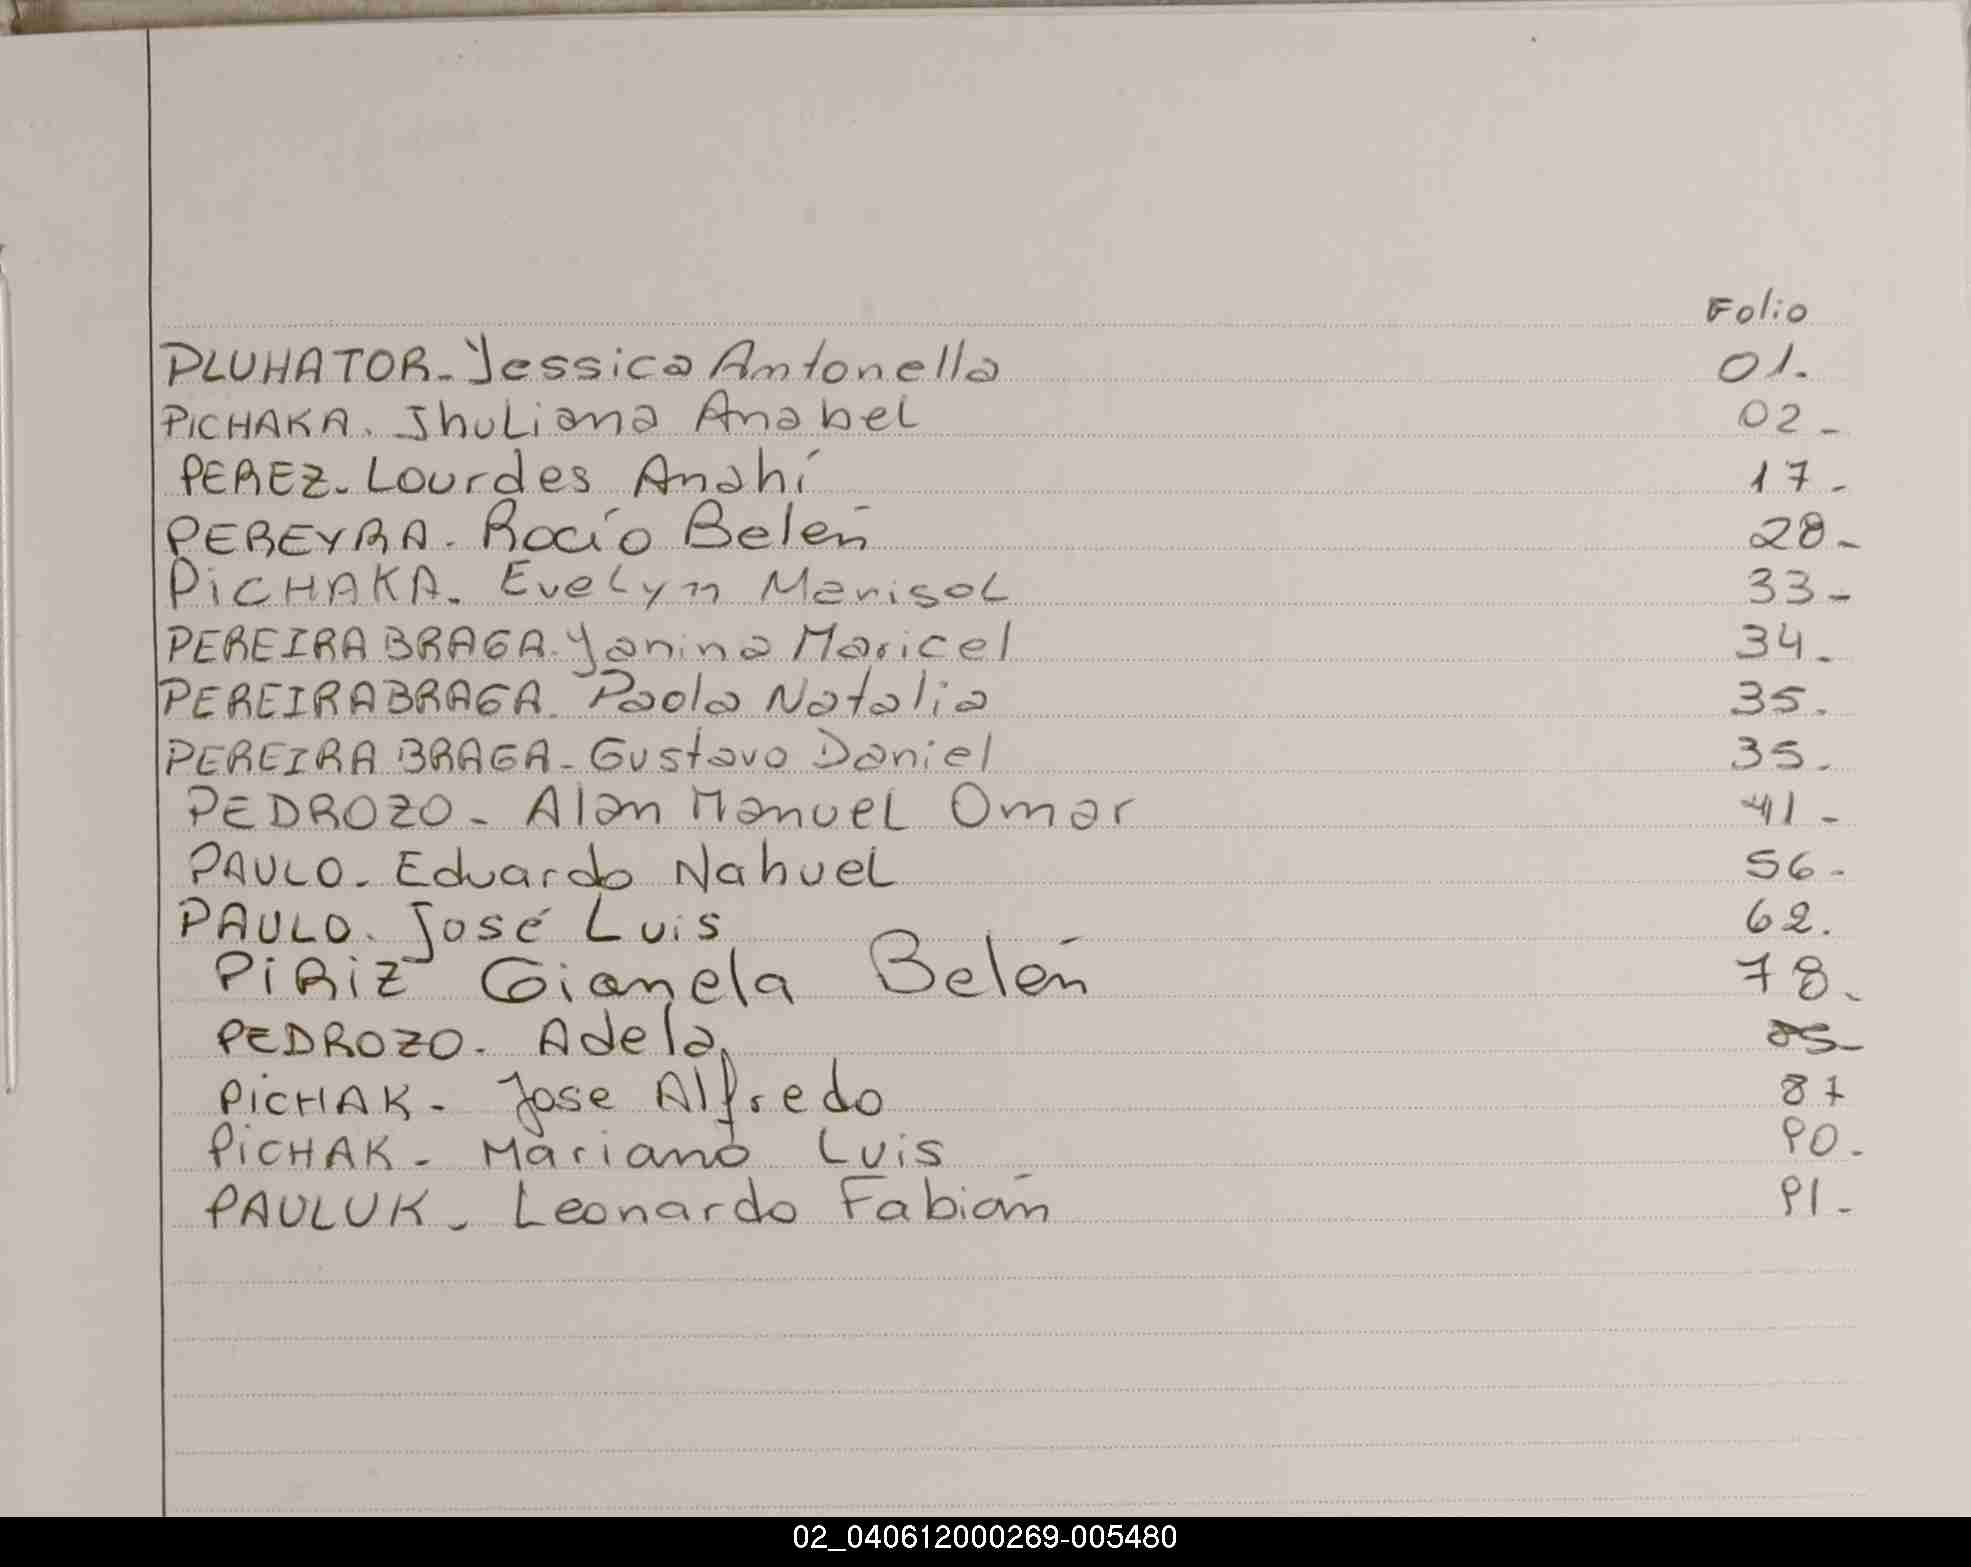 Folio
PLUHATOR - Yessica Antonella 01.
PICHAKA. Jhuliana Anabel 02 -
PEREZ - Lourdes Anahí 17 -
PEREYRA. Rocío Belén 28 -
PICHAKA. Evelyn Marisol 33 -
PEREIRA BRAGA. Yanina Maricel 34 -
PEREIRA BRAGA. Paola Natalia 35.
PEREIRA BRAGA - Gustavo Daniel 35.
PEDROZO - Alan Manuel Omar 41 -
PAULO - Eduardo Nahuel 56 -
PAULO. José Luis 62.
PIRIZ Gianela Belén 78.
PEDROZO. Adela
PICHAK - Jose Alfredo 87
PICHAK - Mariano Luis 90.
PAULUK - Leonardo Fabián 91 -
02_040612000269-005480